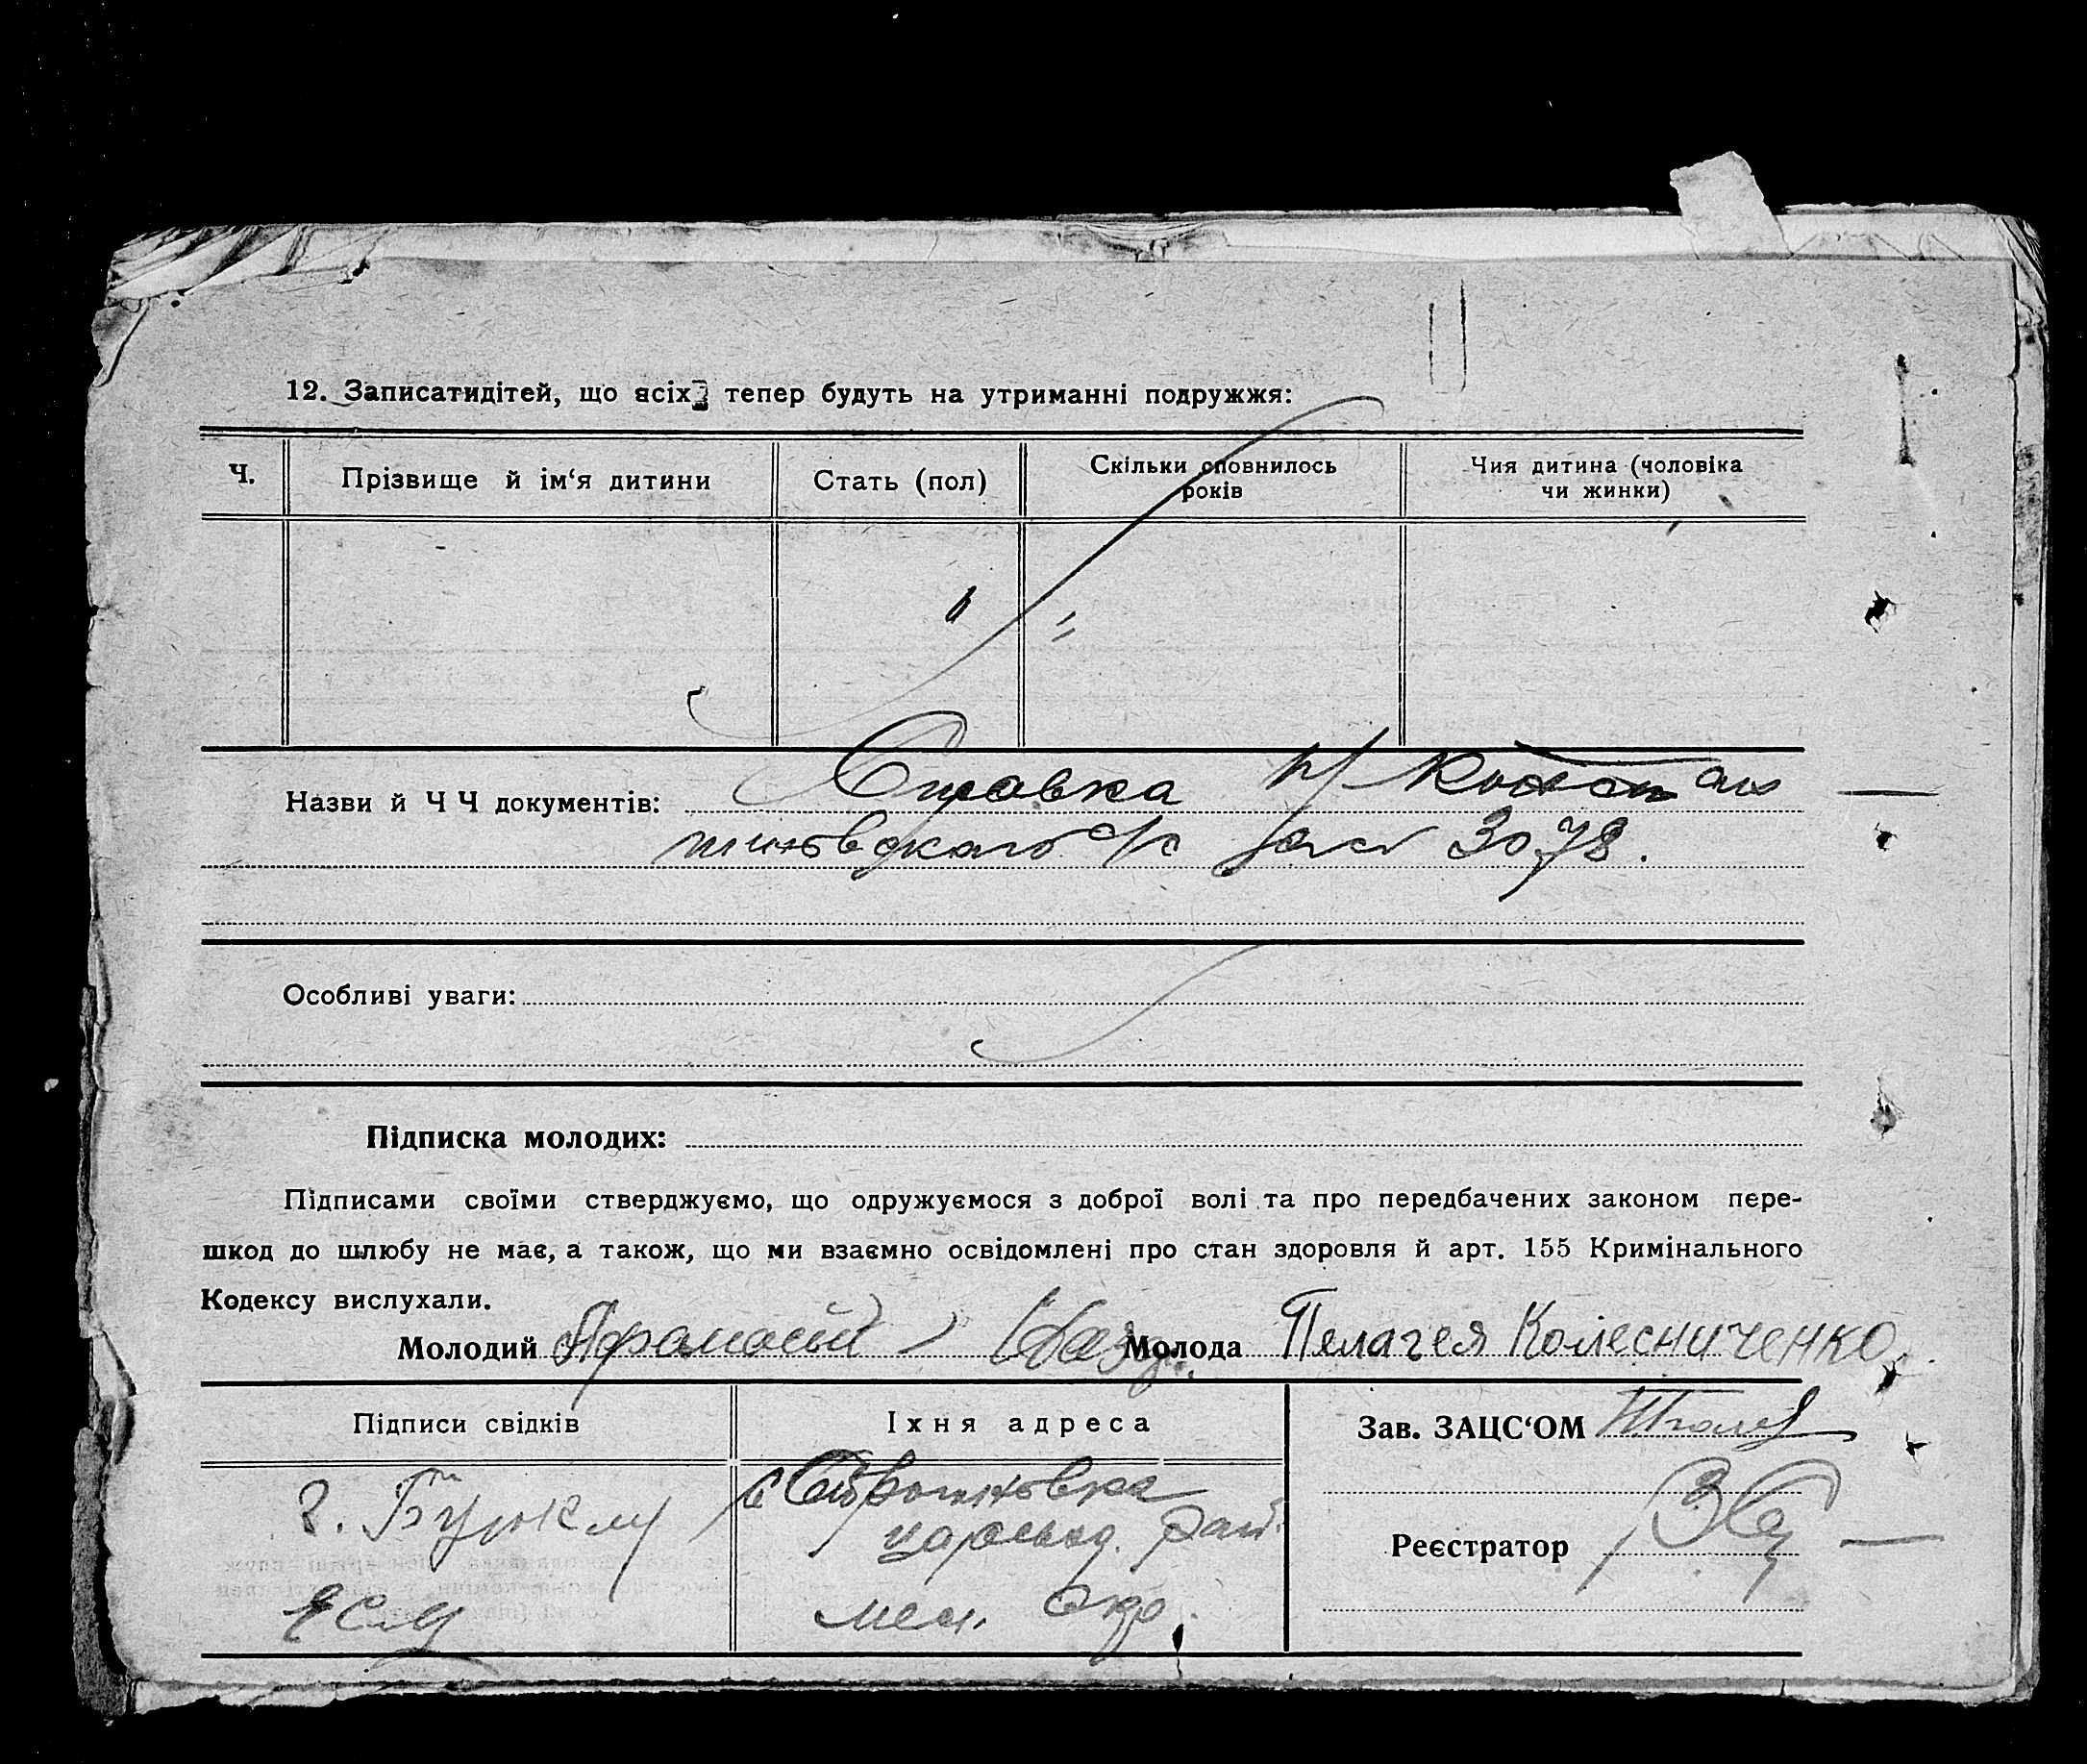 12. Записатидітей, що всіх тепер будуть на утриманні подружжя:
Ч.
Прізвище й ім‘я дитини
Стать (пол)
Скільки сповнилось
років
Чия дитина (чоловіка
чи жинки)
Назви й Ч Ч документів: Справка
с/с 3078.
Особливі уваги:
Підписка молодих:
Підписами своїми стверджуємо, що одружуємося з доброї волі та про передбачених законом пере-
шкод до шлюбу не має, а також, що ми взаємно освідомлені про стан здоровля й арт. 155 Кримінального
Кодексу вислухали.
Молодий Молода Пелагея Колесниченко
Підписи свідків
Іхня адреса
Зав. ЗАЦС‘ОМ
рай.
Реєстратор
мел. окр.